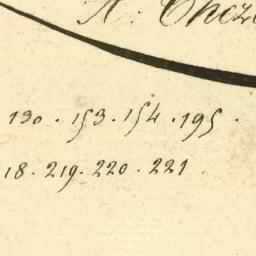 130 . 153 . 154 . 195 .
18 . 219 . 220 . 221 .